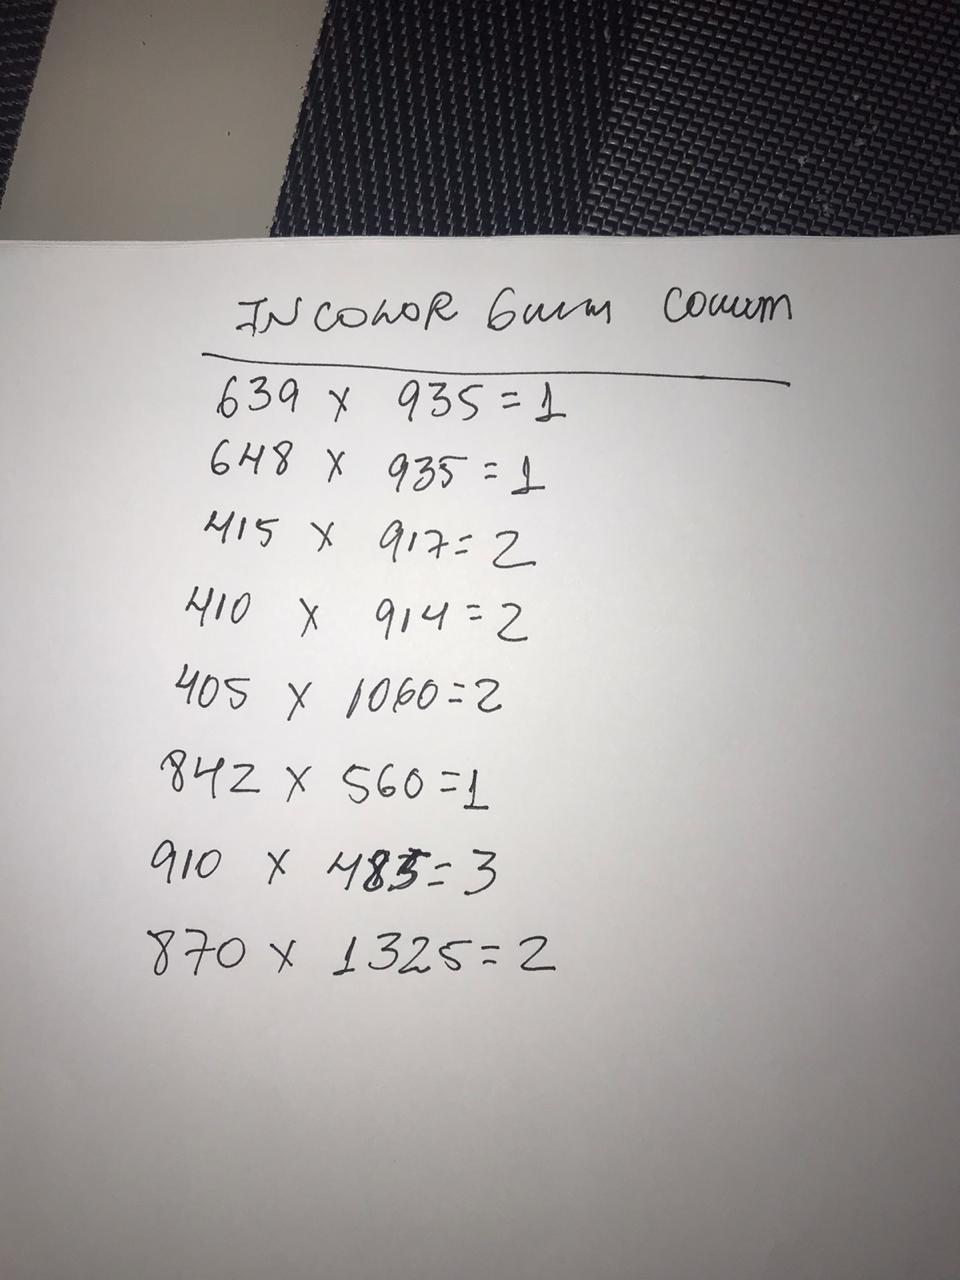 INCOLOR 6mm COMUM
639 X 935 = 1
648 X 935 = 1
415 X 917 = 2
410 X 914 = 2
405 X 1060 = 2
842 X 560 = 1
910 X 485 = 3
870 X 1325 = 2